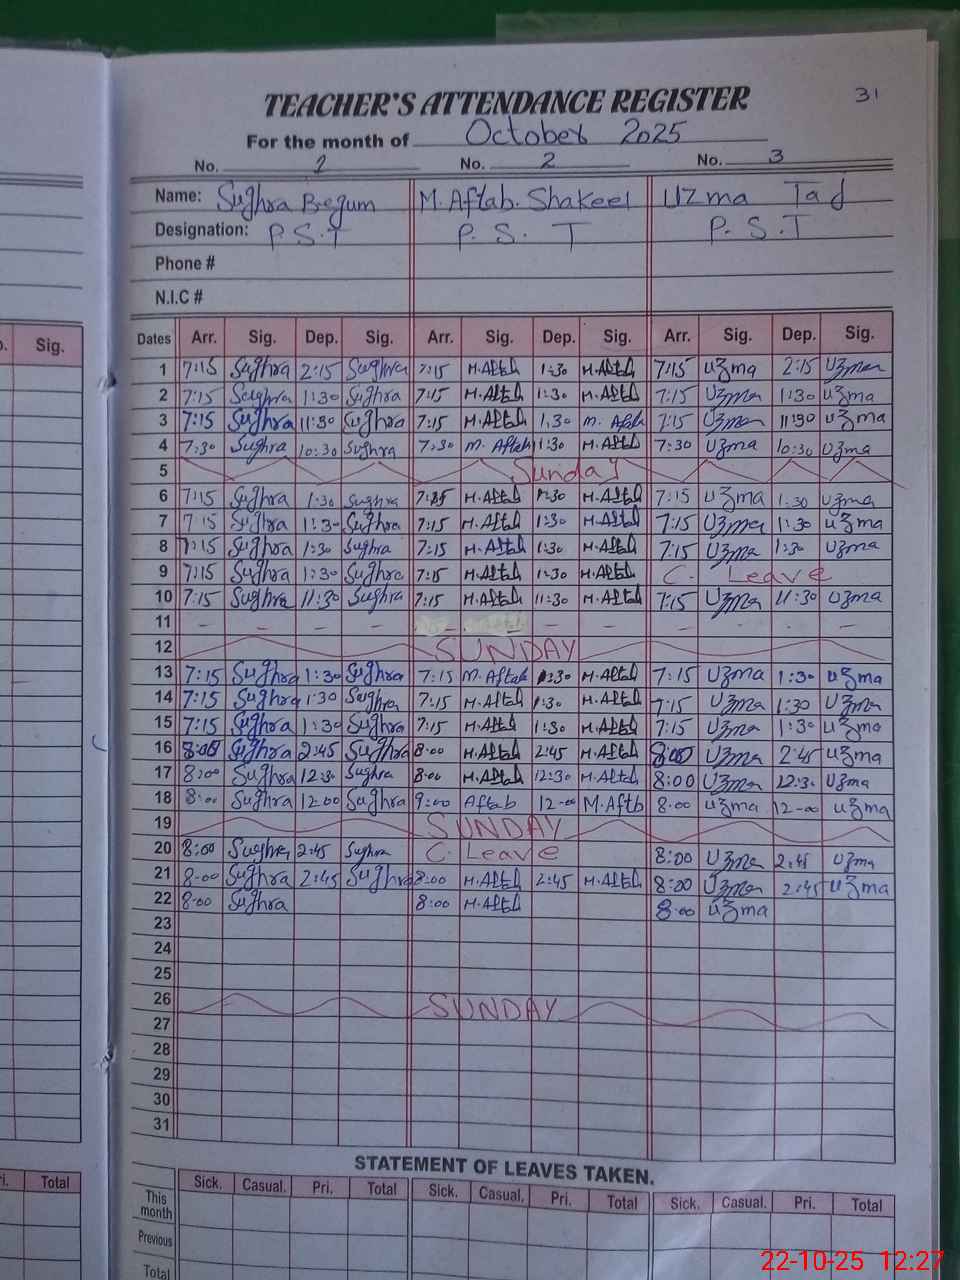 31
TEACHER'S ATTENDANCE REGISTER
For the month of October 2025
No. 1 No. 2 No. 3
Name: Sughra Begum M. Aftab. Shakeel Uzma Taj
Designation: P.S.T P. S. T P. S.T
Phone #
N.I.C #
Sig. Dates Arr. Sig. Dep. Sig. Arr. Sig. Dep. Sig. Arr. Sig. Dep. Sig.
1 7:15 Sughra 2:15 Sughra 7:15 M.Aftab 1:30 M.Aftab 7:15 Uzma 2:15 Uzma
2 7:15 Sughra 1:30 Sughra 7:15 M.Aftab 1:30 M.Aftab 7:15 Uzma 1:30 Uzma
3 7:15 Sughra 11:30 Sughra 7:15 M.Aftab 1:30 M. Aftab 7:15 Uzma 11:30 Uzma
4 7:30 Sughra 10:30 Sughra 7:30 M. Aftab 1:30 M.Aftab 7:30 Uzma 10:30 Uzma
5 Sunday
6 7:15 Sughra 1:30 Sughra 7:15 M.Aftab 1:30 M.Aftab 7:15 Uzma 1:30 Uzma
7 7:15 Sughra 1:3- Sughra 7:15 M.Aftab 1:30 M.Aftab 7:15 Uzma 1:30 Uzma
8 7:15 Sughra 1:30 Sughra 7:15 M.Aftab 1:30 M.Aftab 7:15 Uzma 1:30 Uzma
9 7:15 Sughra 1:30 Sughra 7:15 M.Aftab 1:30 M.Aftab C. Leave
10 7:15 Sughra 11:30 Sughra 7:15 M.Aftab 11:30 M.Aftab 7:15 Uzma 11:30 Uzma
11 - - - - - - - - - -
12 SUNDAY
13 7:15 Sughra 1:30 Sughra 7:15 M.Aftab 1:30 M.Aftab 7:15 Uzma 1:30 Uzma
14 7:15 Sughra 1:30 Sughra 7:15 M.Aftab 1:30 M.Aftab 7:15 Uzma 1:30 Uzma
15 7:15 Sughra 1:30 Sughra 7:15 M.Aftab 1:30 M.Aftab 7:15 Uzma 1:30 Uzma
16 8:00 Sughra 2:45 Sughra 8:00 M.Aftab 2:45 M.Aftab 8:00 Uzma 2:45 Uzma
17 8:00 Sughra 12:30 Sughra 8:00 M.Aftab 12:30 M.Aftab 8:00 Uzma 12:30 Uzma
18 8:00 Sughra 12:00 Sughra 9:00 Aftab 12-00 M.Aftb 8:00 Uzma 12-00 Uzma
19 SUNDAY
20 8:00 Sughra 2:45 Sughra C. Leave 8:00 Uzma 2:45 Uzma
21 8-00 Sughra 2:45 Sughra 8:00 M.Aftab 2:45 M.Aftab 8:00 Uzma 2:45 Uzma
22 8-00 Sughra 8:00 M.Aftab 8:00 Uzma
23
24
25
26 SUNDAY
27
28
29
30
31
STATEMENT OF LEAVES TAKEN.
Total Sick. Casual. Pri. Total Sick. Casual. Pri. Total Sick. Casual. Pri. Total
This month
Previous
Total
22-10-25 12:27